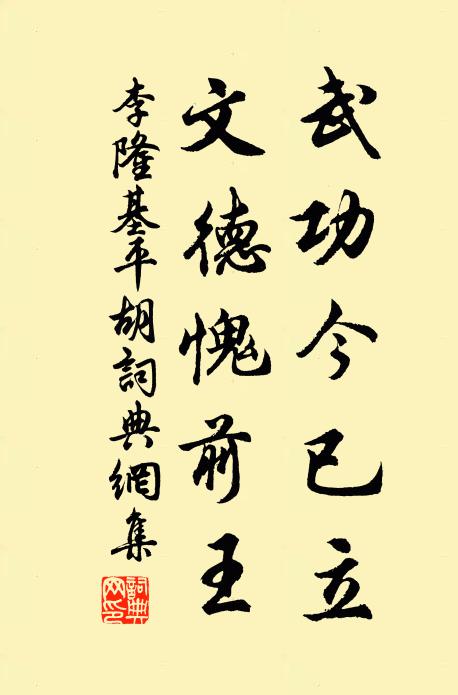 武功今已立
文德愧前王
李隆基平胡詞典網集
詞典
网印